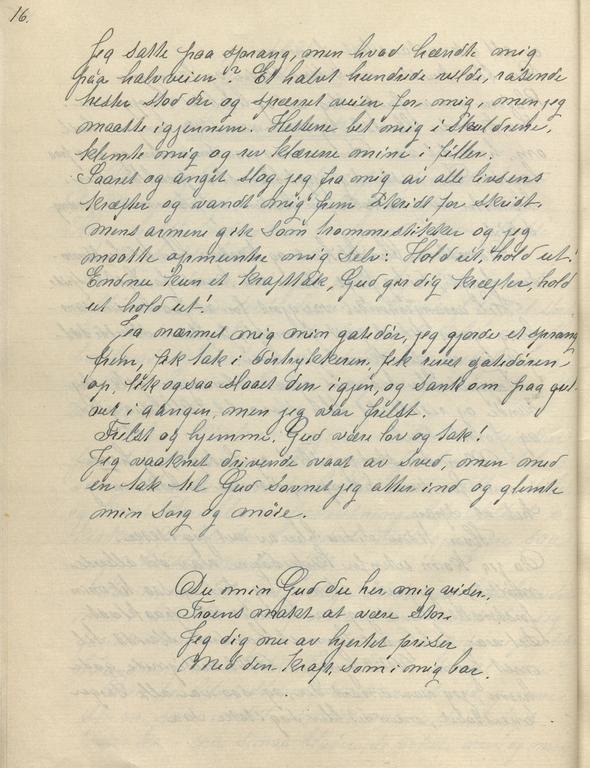 16.
Jeg satte paa sprang, men hvad hændte mig
paa halvveien? Et halvt hundrede vilde, rasende
hester stod der og spærret veien for mig, men jeg
maatte igjennem. Hestene bet mig i skuldrene,
klemte mig og rev klærene mine i filler.
Saaret og angst slog jeg fra mig av alle livsens
kræfter og vandt mig frem skridt for skridt,
mens armene gik som trommestikker og jeg
maatte opmuntre mig selv: Hold ut, hold ut!
Endnu kun et krafttak, Gud gir dig kræfter, hold
ut hold ut!
Jeg nærmet mig min gatedør, jeg gjorde et sprang
frem, fik tak i dørtrykkeren, fik revet gatedøren
op, fik ogsaa slaaet den igjen, og sank om paa gul-
vet i gangen, men jeg var frelst.
Frelst og hjemme. Gud være lov og tak!
Jeg vaaknet drivende vaat av sved, men med
en tak til Gud sovnet jeg atter ind og glemte
min sorg og møie.
Du min Gud du her mig viser,
Troens makt at være stor.
Jeg dig nu av hjertet priser
Med den kraft, som i mig bor.